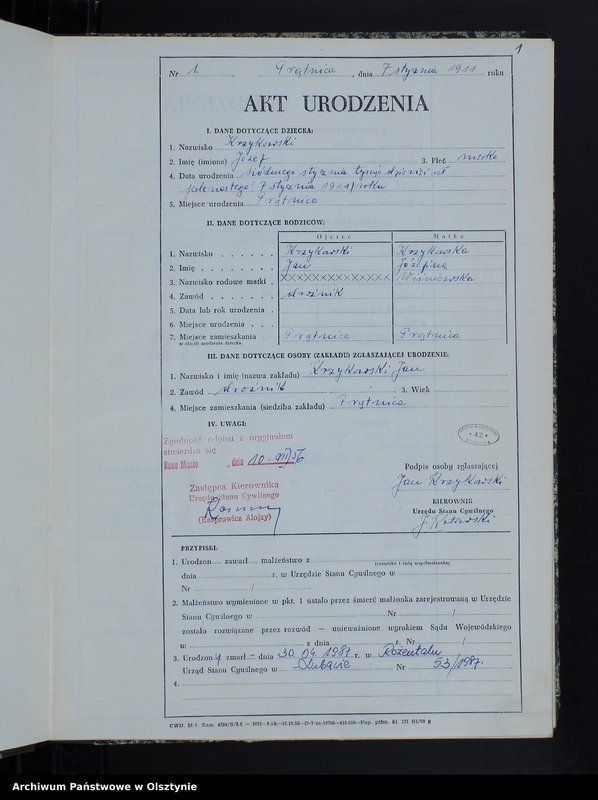 1
Nr 1. Prątnica, dnia 7 stycznia 1911 roku
AKT URODZENIA
I. DANE DOTYCZĄCE DZIECKA:
1. Nazwisko Krzykowski
2. Imię (imiona) Józef 3. Płeć męska
4. Data urodzenia siódmego stycznia tysiąc dziewięćset
jedenastego (7 stycznia 1911) roku
5. Miejsce urodzenia Prątnica
II. DANE DOTYCZĄCE RODZICÓW:
Ojciec Matka
1. Nazwisko Krzykowski Krzykowska
2. Imię Jan Józefina
3. Nazwisko rodowe matki XXXXXXXXXXXXX Wiśniewska
4. Zawód drożnik
5. Data lub rok urodzenia
6. Miejsce urodzenia
7. Miejsce zamieszkania Prątnica Prątnica
w chwili urodzenia dziecka
III. DANE DOTYCZĄCE OSOBY (ZAKŁADU) ZGŁASZAJĄCEJ URODZENIE:
1. Nazwisko i imię (nazwa zakładu) Krzykowski Jan
2. Zawód drożnik 3. Wiek
4. Miejsce zamieszkania (siedziba zakładu) Prątnica
IV. UWAGI:
Zgodność odpisu z oryginałem
stwierdza się
Nowe Miasto, dnia 10.
42
Zastępca Kierownika
Urzędu Stanu Cywilnego
(Kasprowicz Alojzy)
Podpis osoby zgłaszającej
Jan Krzykowski
KIEROWNIK
Urzędu Stanu Cywilnego
PRZYPISKI:
1. Urodzon zawarł małżeństwo z
(nazwisko i imię współmałżonka)
dnia r. w Urzędzie Stanu Cywilnego w
Nr /
2. Małżeństwo wymienione w pkt. 1 ustało przez śmierć małżonka zarejestrowaną w Urzędzie
Stanu Cywilnego w Nr /
zostało rozwiązane przez rozwód — unieważnione wyrokiem Sądu Wojewódzkiego
w z dnia r. Nr /
3. Urodzony zmarł — dnia 30.04.1987 r. w Rożentalu
Urząd Stanu Cywilnego w Lubawie Nr 53/1987.
4.
Archiwum Państwowe w Olsztynie